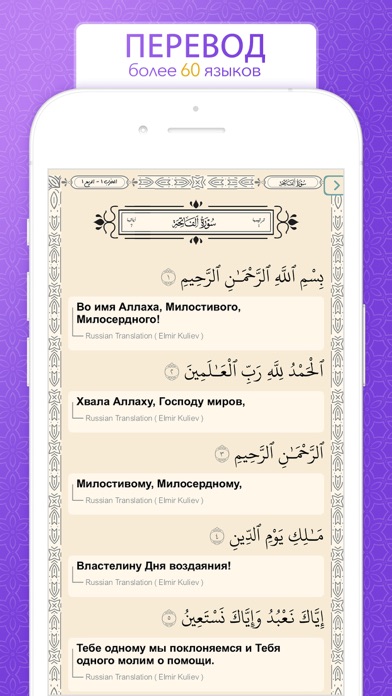 ПЕРЕВОД
более 60 языков
سُورَةُ ٱلْفَاتِحَةِ
سُورَةُ ٱلْفَاتِحَةِ
بِسْمِ ٱللَّهِ ٱلرَّحْمَـٰنِ ٱلرَّحِيمِ ١
Во имя Аллаха, Милостивого,
Милосердного!
Russian Translation ( Elmir Kuliev )
ٱلْحَمْدُ لِلَّهِ رَبِّ ٱلْعَـٰلَمِينَ ٢
Хвала Аллаху, Господу миров,
Russian Translation ( Elmir Kuliev )
ٱلرَّحْمَـٰنِ ٱلرَّحِيمِ ٣
Милостивому, Милосердному,
Russian Translation ( Elmir Kuliev )
مَـٰلِكِ يَوْمِ ٱلدِّينِ ٤
Властелину Дня воздаяния!
Russian Translation ( Elmir Kuliev )
إِيَّاكَ نَعْبُدُ وَإِيَّاكَ نَسْتَعِينُ ٥
Тебе одному мы поклоняемся и Тебя
одного молим о помощи.
Russian Translation ( Elmir Kuliev )